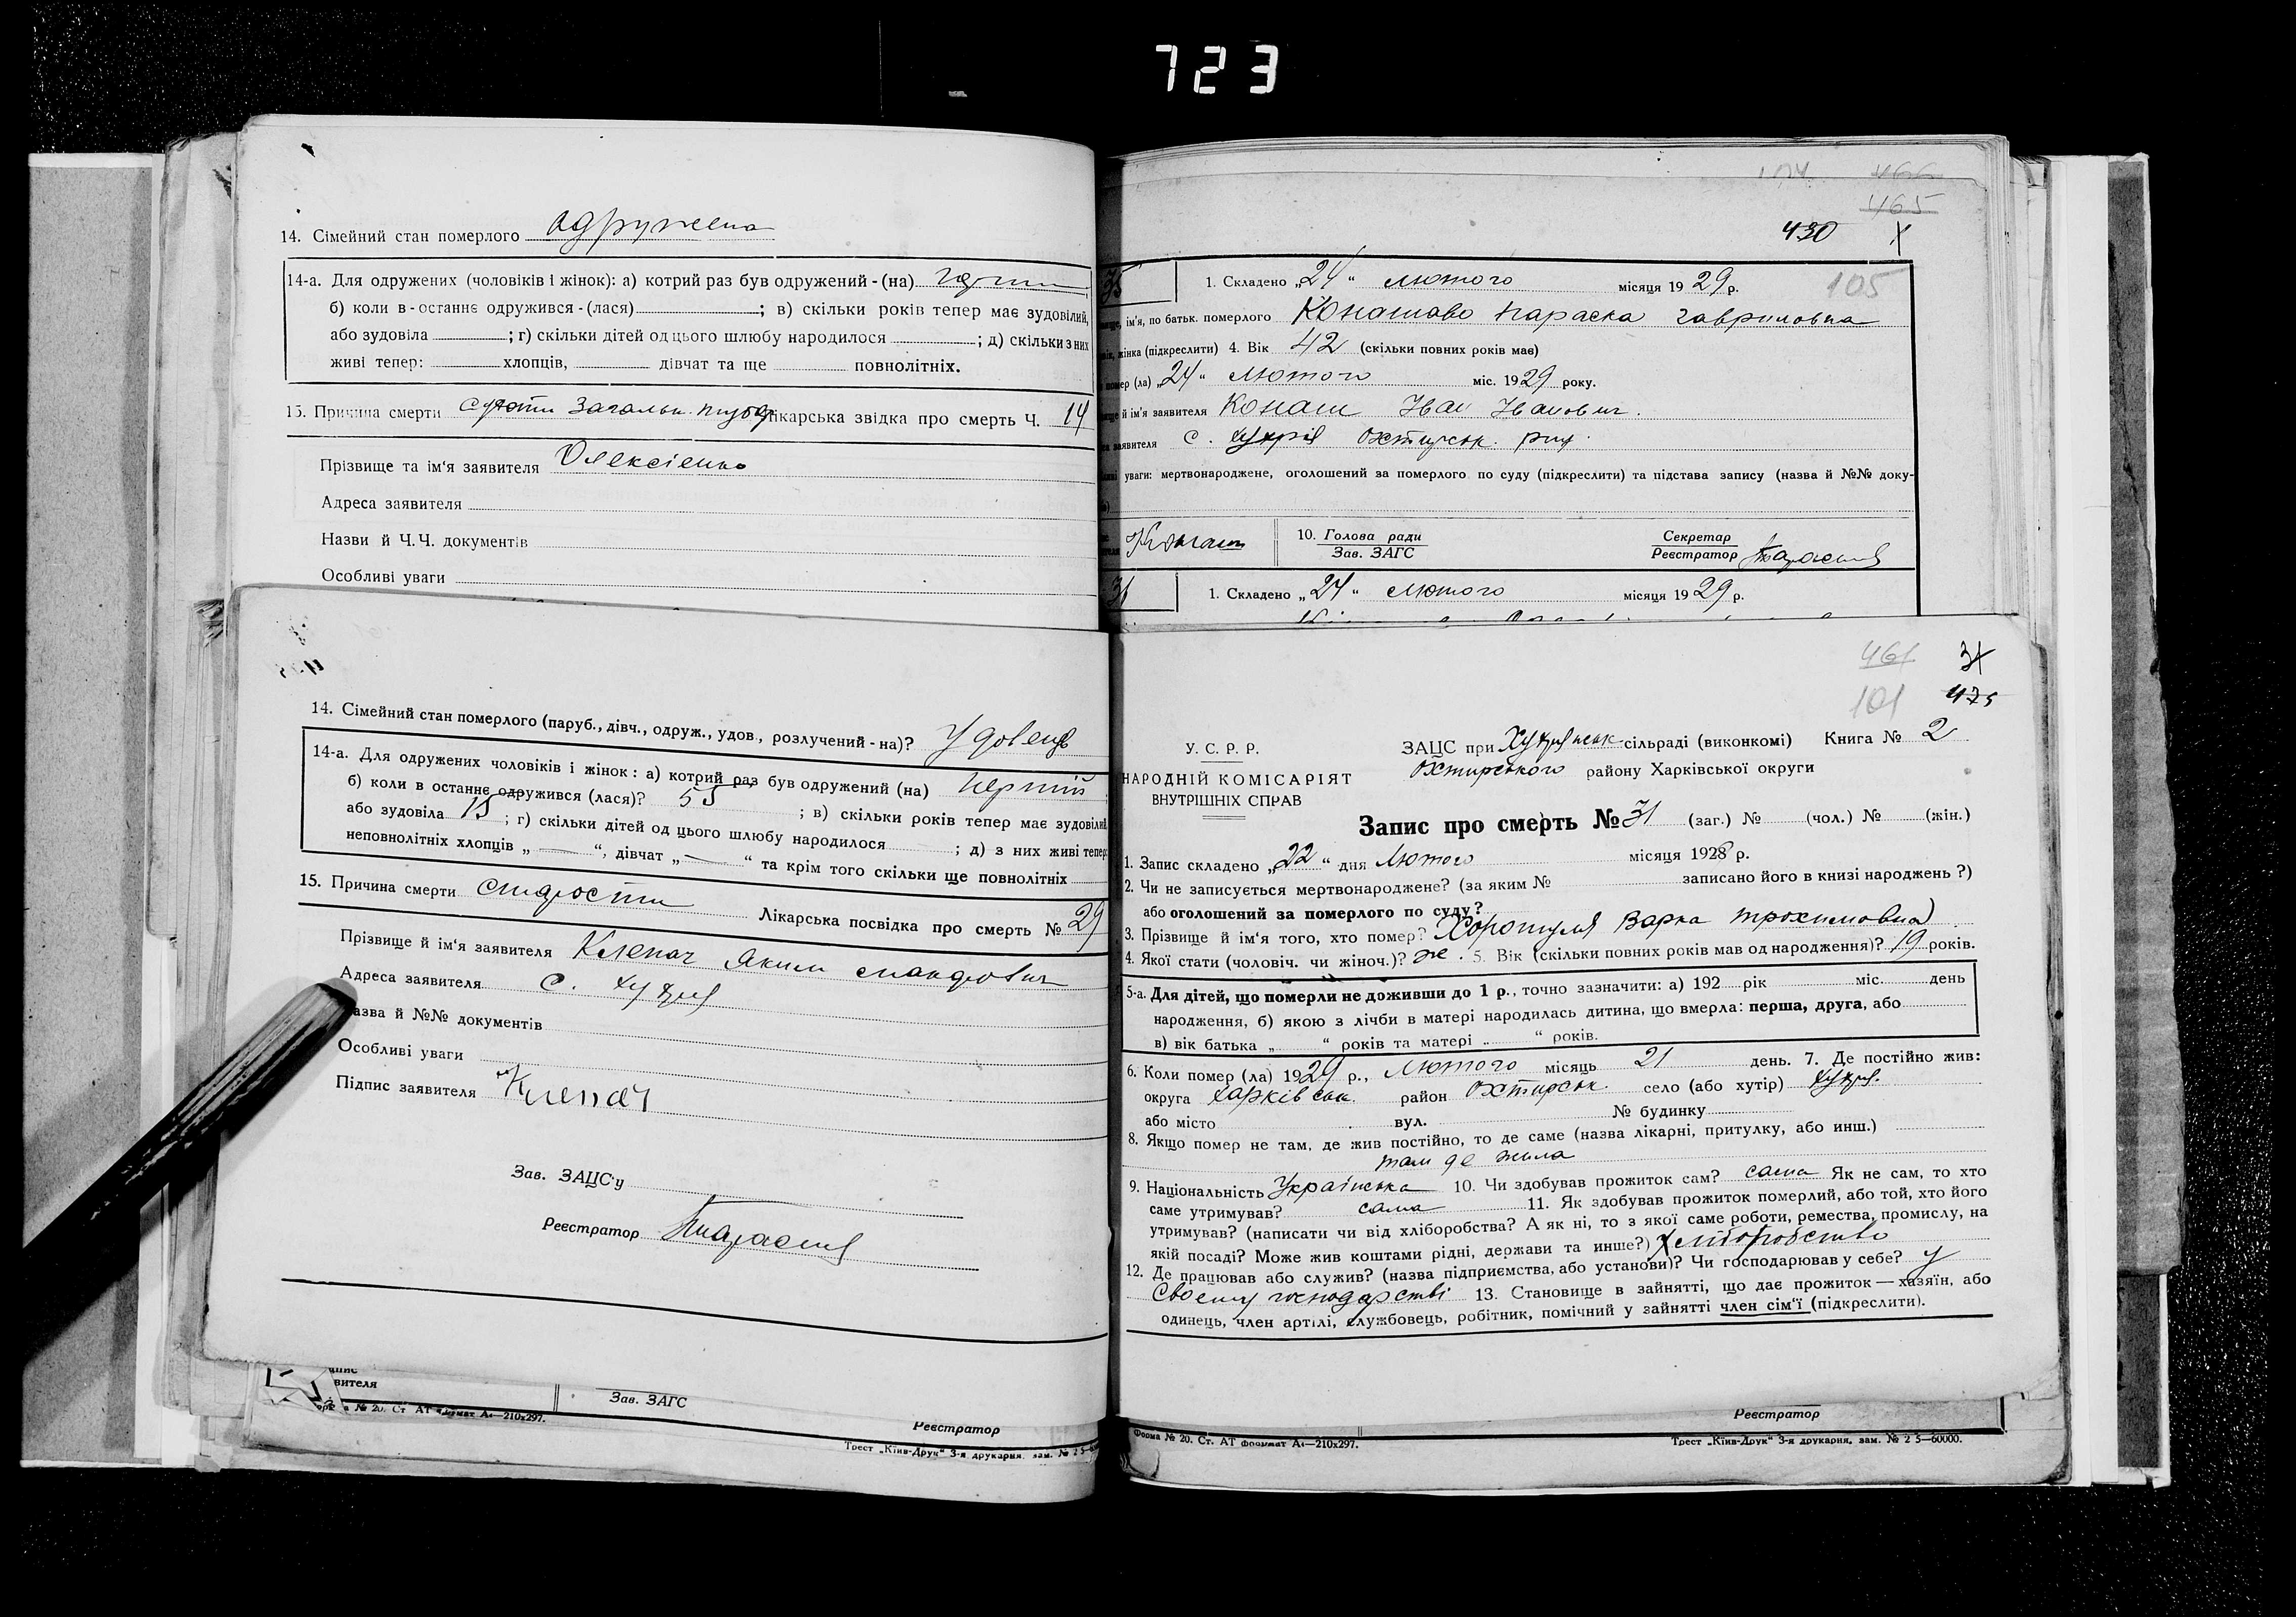 723
14. Сімейний стан померлого одружена
14-а. Для одружених (чоловіків і жінок): а) котрий раз був одружений-(на)
б) коли в-останнє одружився-(лася) ; в) скільки років тепер має зудовілий,
або зудовіла ; г) скільки дітей од цього шлюбу народилося ; д) скільки з них
живі тепер: хлопців, дівчат та ще повнолітніх.
15. Причина смерти лікарська звідка про смерть Ч. 14
Прізвище та ім'я заявителя Олексієнко
Адреса заявителя
Назви й Ч.Ч. документів
Особливі уваги
14. Сімейний стан померлого (паруб., дівч., одруж., удов., розлучений-на)? Удовець
14-а. Для одружених чоловіків і жінок: а) котрий раз був одружений (на) перший
б) коли в останнє одружився (лася)? 55 ; в) скільки років тепер має зудовілий
або зудовіла 15 ; г) скільки дітей од цього шлюбу народилося ; д) з них живі тепер:
неповнолітніх хлопців „ — “, дівчат „ — “ та крім того скільки ще повнолітніх
15. Причина смерти старости Лікарська посвідка про смерть № 29
Прізвище й ім'я заявителя Клепач Яким
Адреса заявителя с. Хухря
азва й №№ документів
Особливі уваги
Підпис заявителя Клепач
Зав. ЗАЦС'у
Реєстратор
апис
вителя
Зав. ЗАГС
Реєстратор
№ 20. Ст. АТ формат А4—210x297.
Трест „Київ-Друк“ 3-я друкарня, зам. № 2
466
465
430
105
35 1. Складено „24“ лютого місяця 1929 р.
ім'я, по батьк. померлого Конашова Параска Гавриловна
жінка (підкреслити) 4. Вік 42 (скільки повних років має)
мер (ла) „24“ лютого міс. 1929 року.
й ім'я заявителя Конаш Іван Іванович.
заявителя с. Хухря Охтирськ. рай.
уваги: мертвонароджене, оголошений за померлого по суду (підкреслити) та підстава запису (назва й №№ доку-
Конаш 10. Голова ради Секретар
Зав. ЗАГС Реєстратор
36 1. Складено „24“ лютого місяця 1929 р.
461 31
101 475
У. С. Р. Р. ЗАЦС при Хухрянськ сільраді (виконкомі) Книга № 2
НАРОДНІЙ КОМІСАРІЯТ Охтирського району Харківської округи
ВНУТРІШНІХ СПРАВ
Запис про смерть № 31 (заг.) № (чол.) № (жін.)
1. Запис складено „22“ дня Лютого місяця 1928 р.
2. Чи не записується мертвонароджене? (за яким № записано його в книзі народжень?)
або оголошений за померлого по суду?
3. Прізвище й ім'я того, хто помер? Варка Трохимовна
4. Якої стати (чоловіч. чи жіноч.)? ж. 5. Вік (скільки повних років мав од народження)? 19 років.
5-а. Для дітей, що померли не доживши до 1 р., точно зазначити: а) 192 рік міс. день
народження, б) якою з лічби в матері народилась дитина, що вмерла: перша, друга, або
в) вік батька „ “ років та матері „ “ років.
6. Коли помер (ла) 1929 р., Лютого місяць 21 день. 7. Де постійно жив:
округа Харківськ. район Охтирськ. село (або хутір) Хухря.
або місто вул. № будинку
8. Якщо помер не там, де жив постійно, то де саме (назва лікарні, притулку, або инш.)
там де жила
9. Національність Українська 10. Чи здобував прожиток сам? сама Як не сам, то хто
саме утримував? сама 11. Як здобував прожиток померлий, або той, хто його
утримував? (написати чи від хліборобства? А як ні, то з якої саме роботи, ремества, промислу, на
якій посаді? Може жив коштами рідні, держави та инше?) Хліборобство
12. Де працював або служив? (назва підприємства, або установи)? Чи господарював у себе? у
своєму господарстві 13. Становище в зайнятті, що дає прожиток — хазяїн, або
одинець, член артілі, службовець, робітник, помічний у зайнятті член сім'ї (підкреслити).
Реєстратор
Форма № 20. Ст. АТ формат А4—210x297.
Трест „Київ-Друк“ 3-я друкарня, зам. № 2 5—60000.